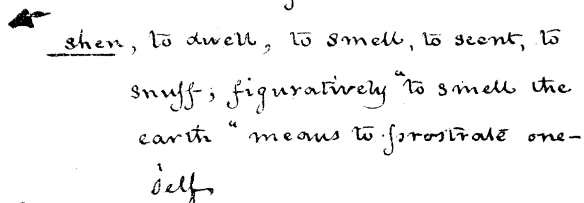 shen, to dwell, to smell, to scent, to
snuff; figuratively "to smell the
earth" means to prostrate one-
self,